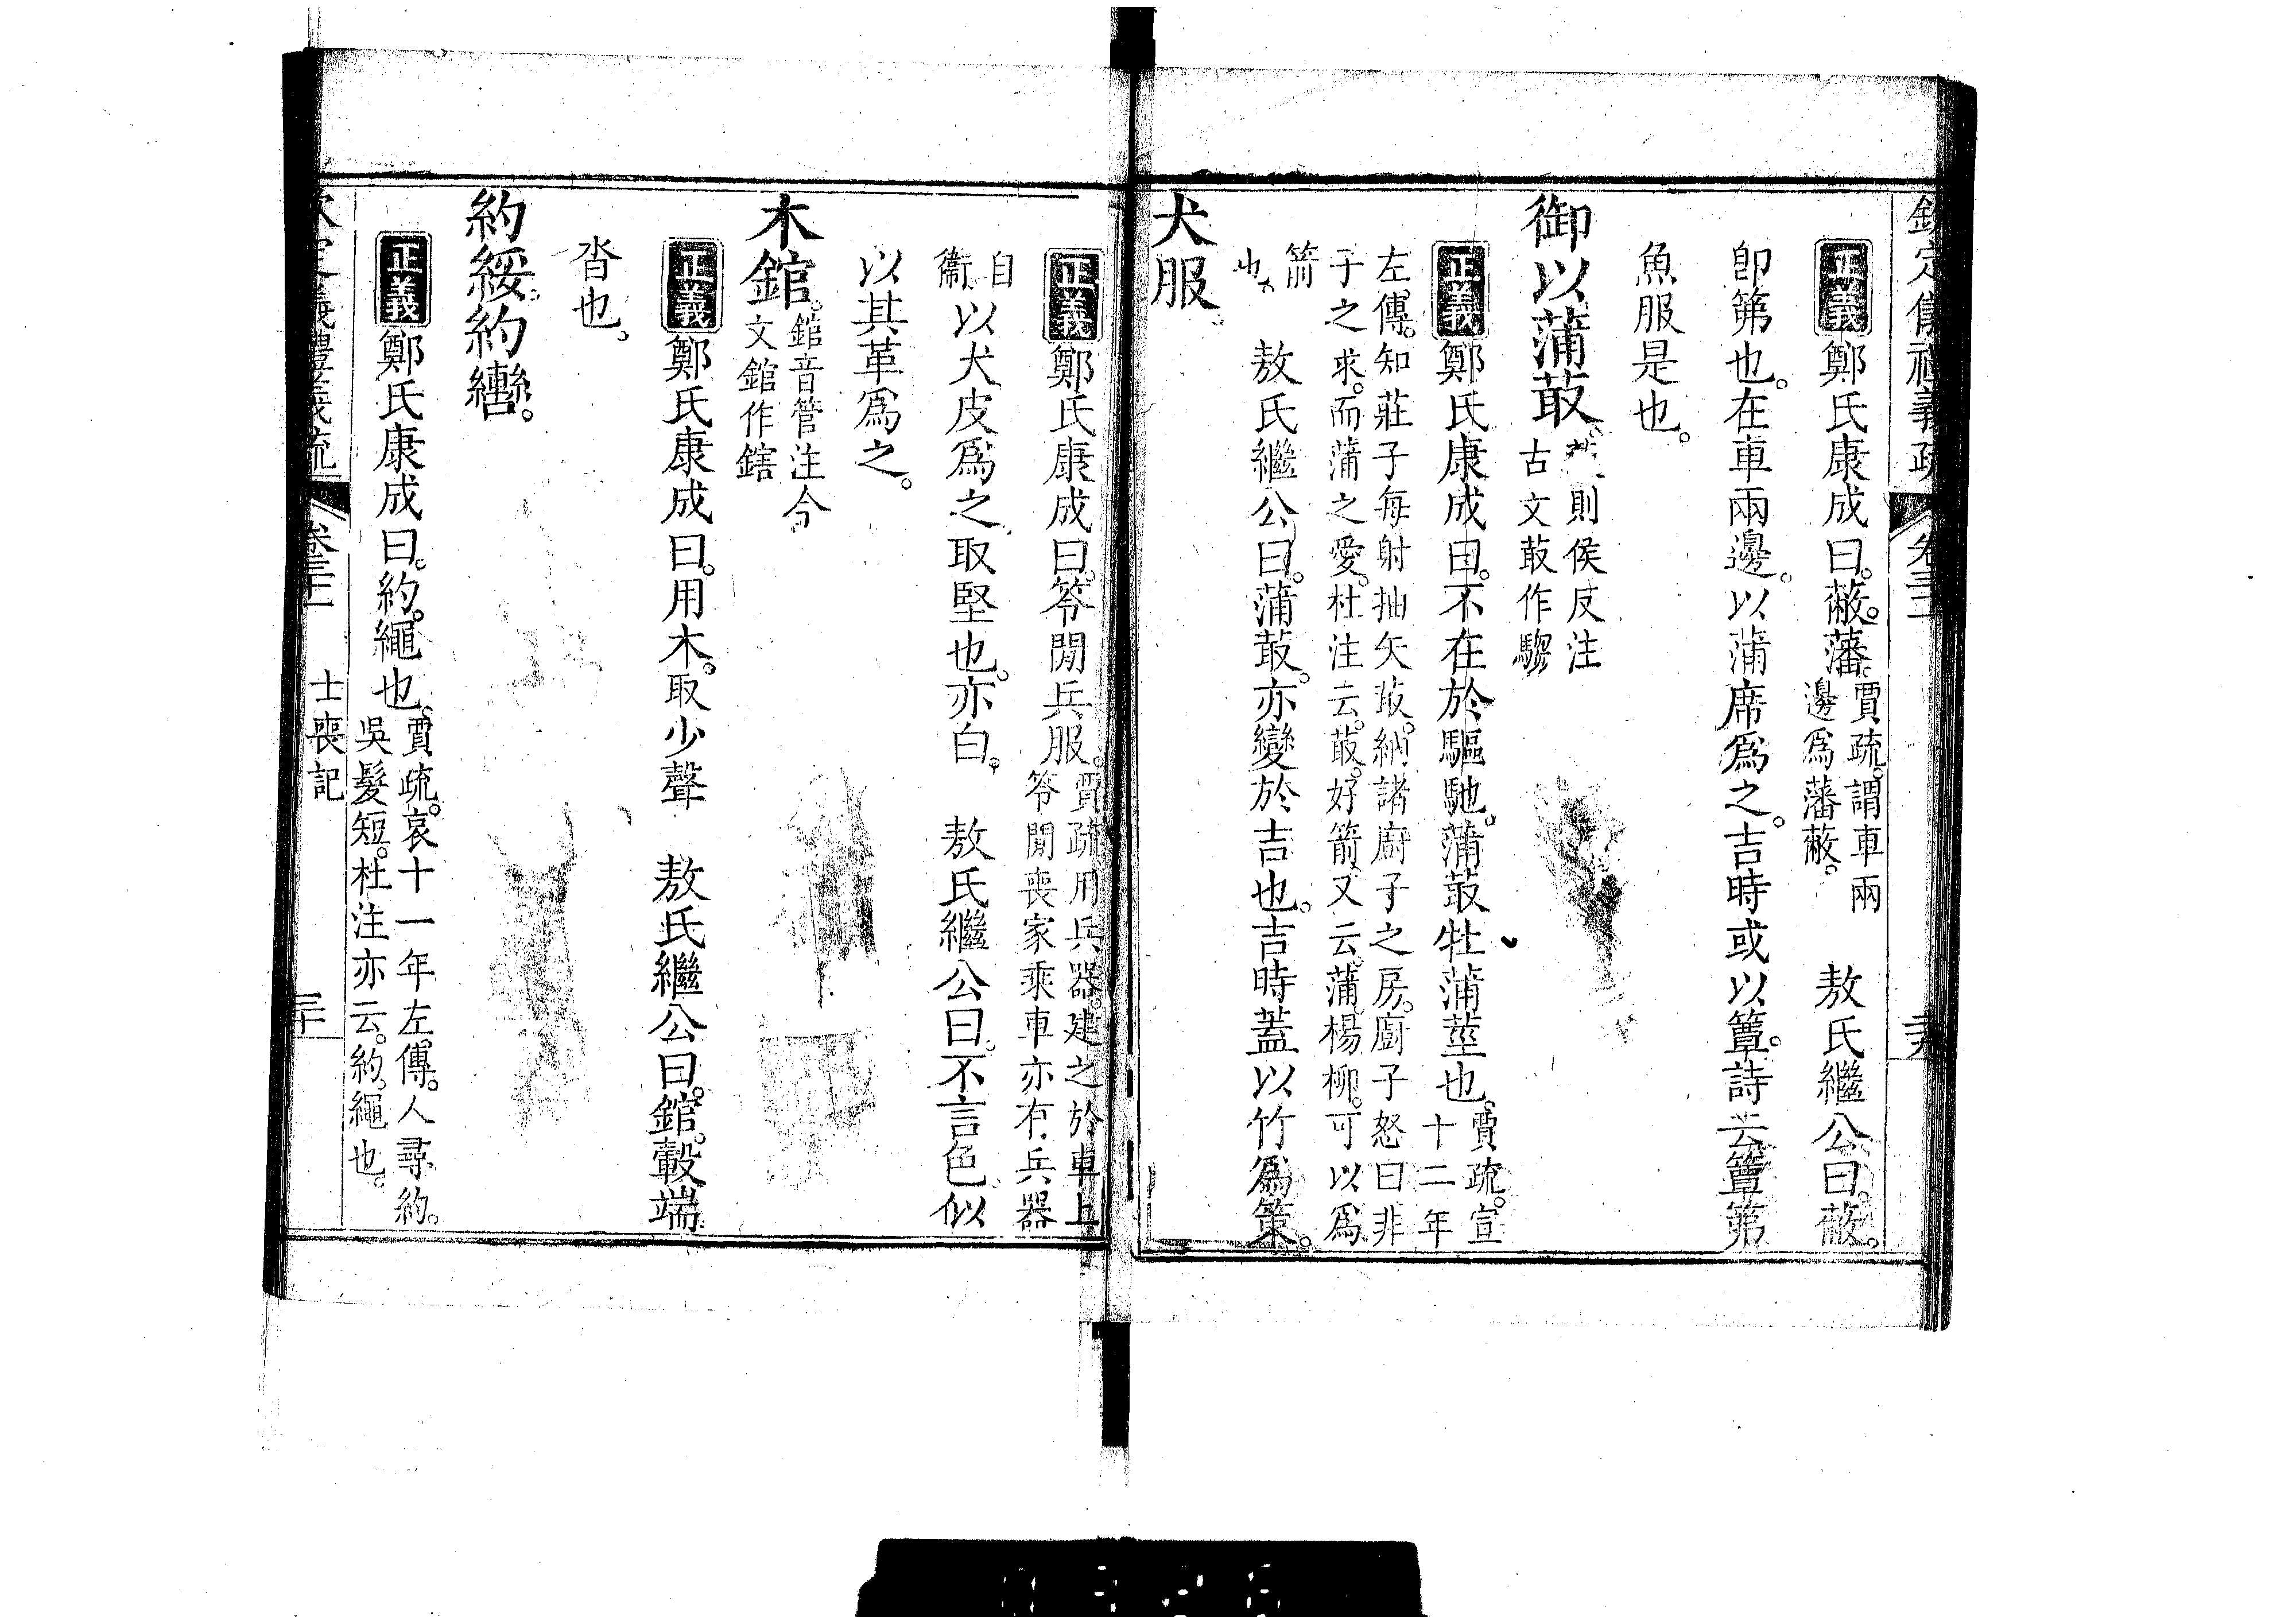 欽定儀禮義疏 卷三十一 三十九
正義鄭氏康成曰。蔽。藩。賈疏。謂車兩
邊爲藩蔽。 敖氏繼公曰。蔽。
卽笰也。在車兩邊。以蒲席爲之。吉時或以簟。詩云簟笰
魚服是也。
御以蒲菆。菆則侯反注
古文菆作騶
正義鄭氏康成曰。不在於驅馳。蒲菆牡蒲莖也。賈疏。宣
十二年
左傳。知莊子每射抽矢菆。納諸廚子之房。廚子怒曰非
子之求。而蒲之愛。杜注云。菆。好箭。又云。蒲。楊柳。可以爲
箭
也 敖氏繼公曰。蒲菆。亦變於吉也。吉時蓋以竹爲策。
犬服。
正義鄭氏康成曰。笭閒兵服。賈疏用兵器。建之於車上
笭閒喪家乘車亦有兵器
自
衞以犬皮爲之取堅也。亦白。 敖氏繼公曰。不言色似
以其革爲之。
木錧。錧音管注今
文錧作鎋
正義鄭氏康成曰。用木。取少聲 敖氏繼公曰。錧。轂端
沓也。
約綏。約轡。
正義鄭氏康成曰。約。繩也。賈疏。哀十一年左傳。人尋約。
吳髮短。杜注亦云。約。繩也。
士喪記